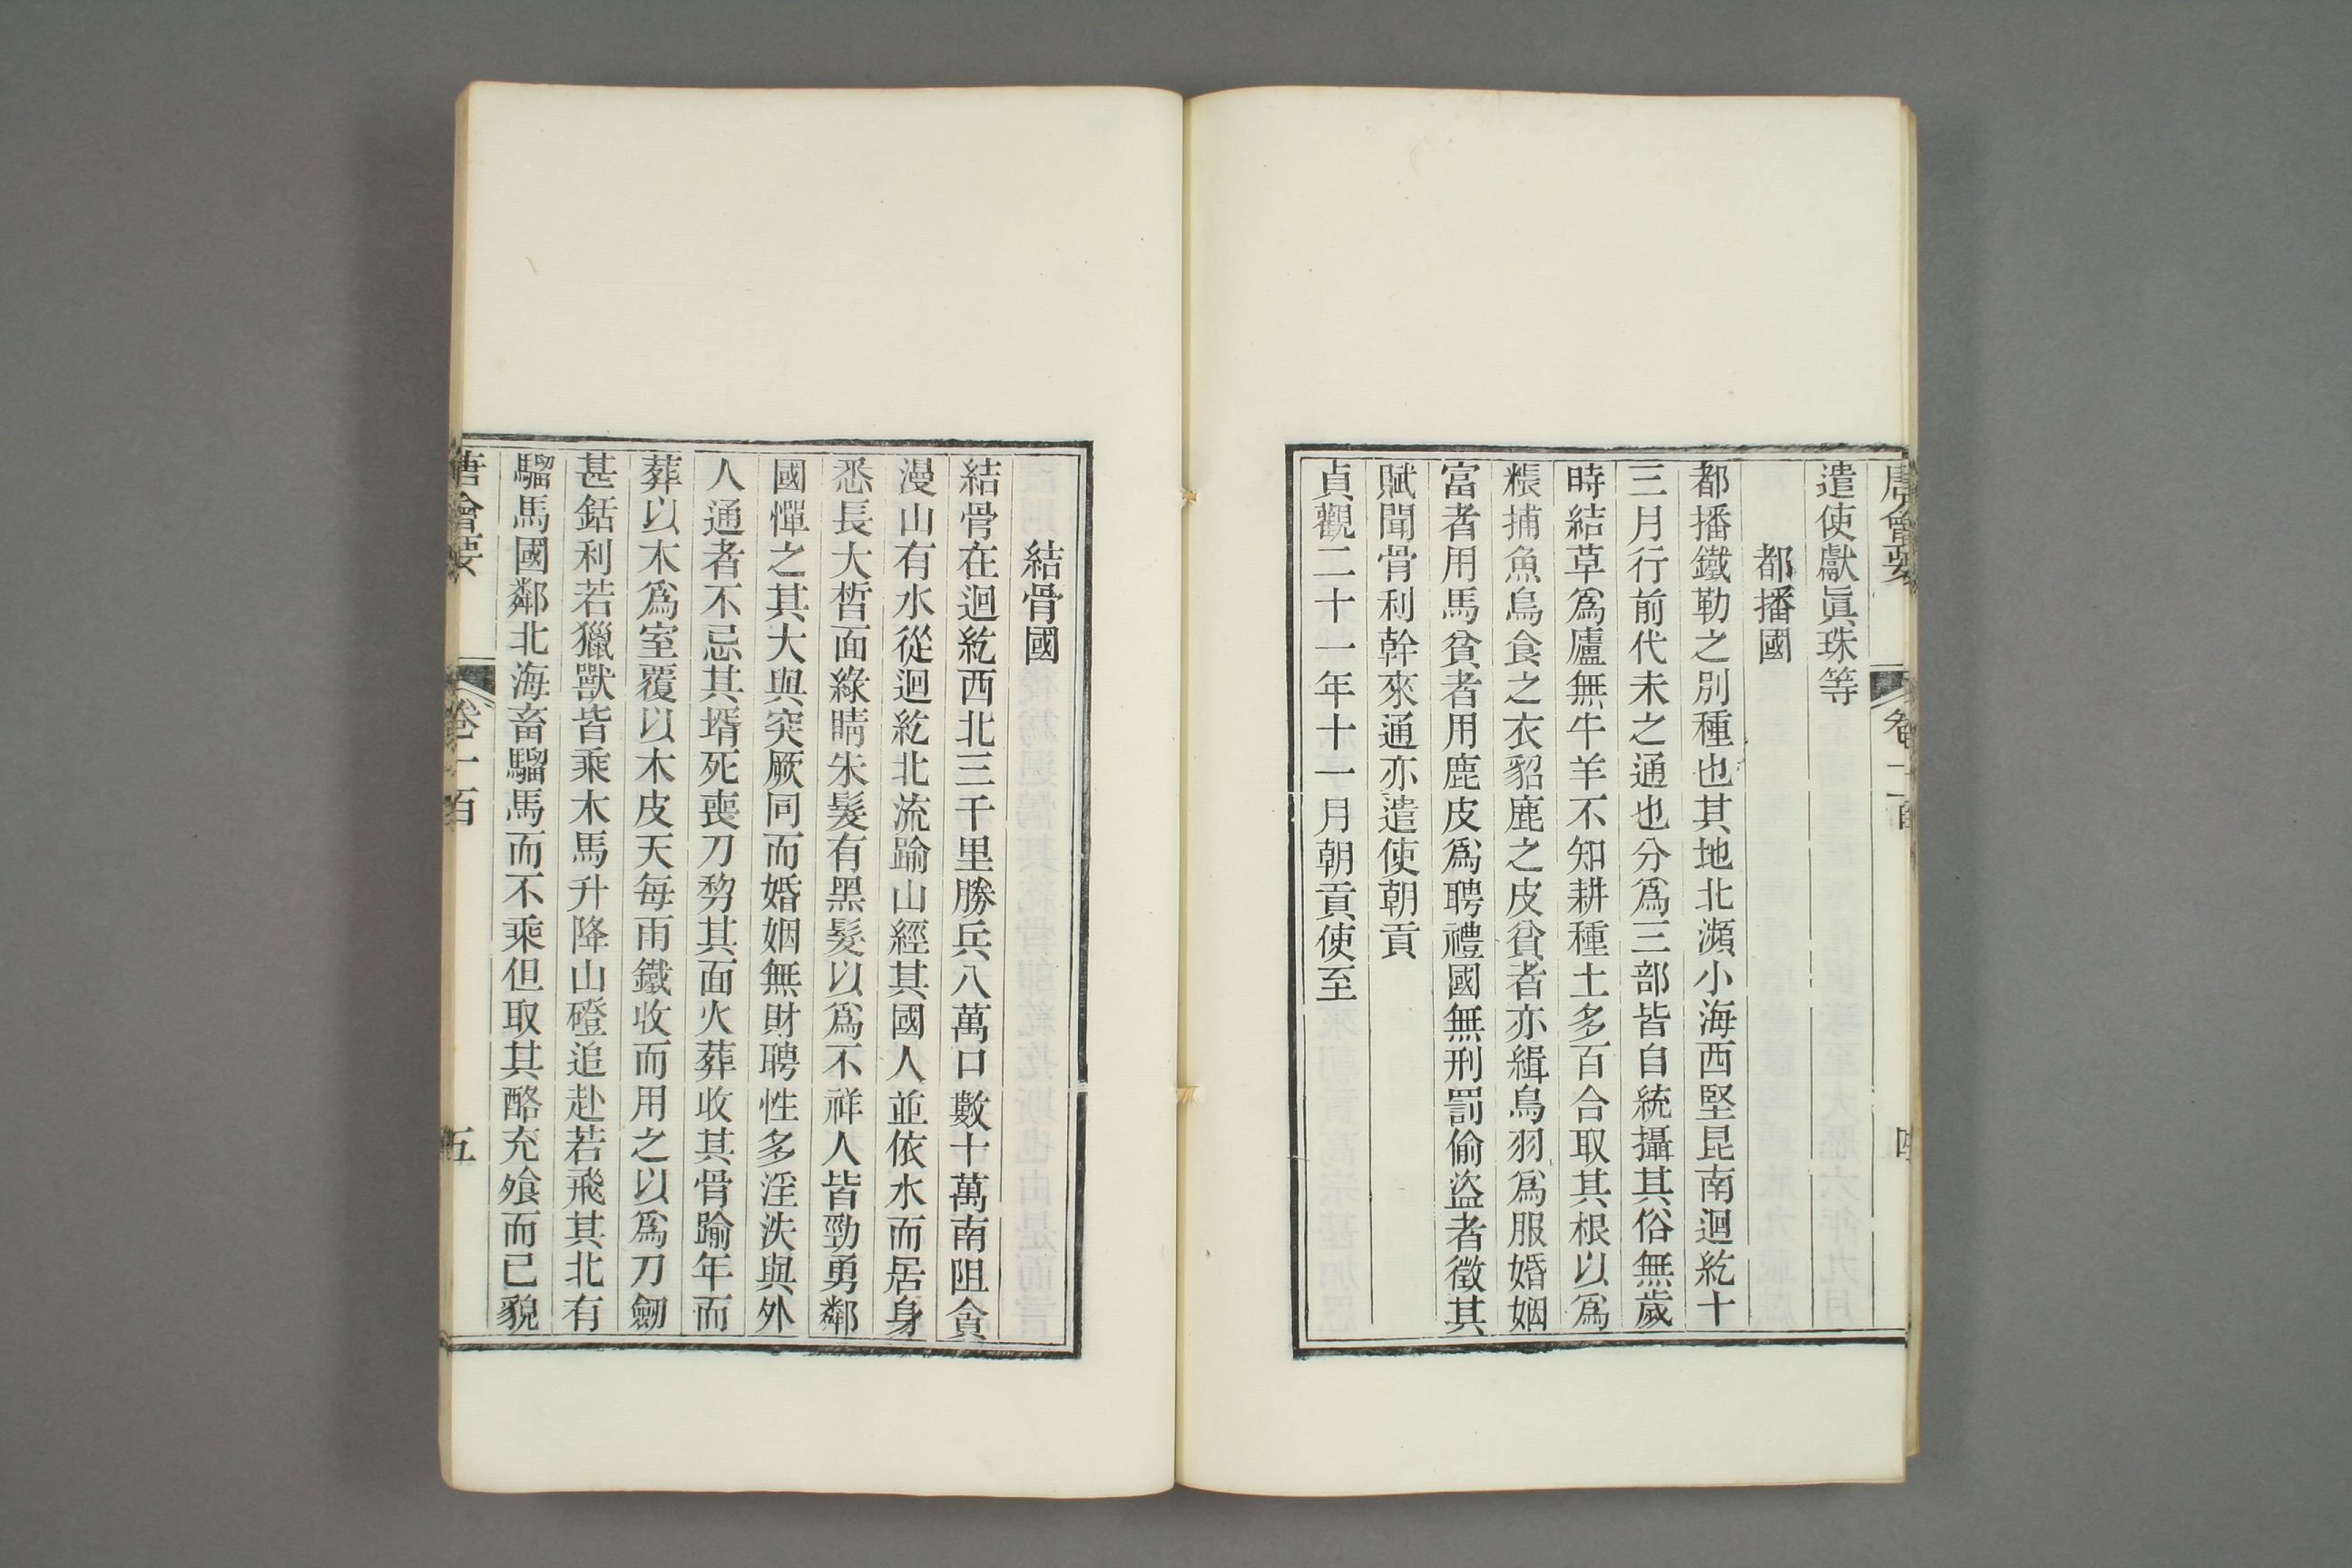 唐會要 卷一百 四
遣使獻眞珠等
都播國
都播鐵勒之別種也其地北瀕小海西堅昆南迴紇十
三月行前代未之通也分爲三部皆自統攝其俗無歲
時結草爲廬無牛羊不知耕種土多百合取其根以爲
粻捕魚鳥食之衣貂鹿之皮貧者亦緝鳥羽爲服婚姻
富者用馬貧者用鹿皮爲聘禮國無刑罰偷盜者徵其
賦聞骨利幹來通亦遣使朝貢
貞觀二十一年十一月朝貢使至
結骨國
結骨在迴紇西北三千里勝兵八萬口數十萬南阻貪
漫山有水從迴紇北流踰山經其國人並依水而居身
悉長大皙面綠睛朱髮有黑髮以爲不祥人皆勁勇鄰
國憚之其大與突厥同而婚姻無財聘性多淫泆與外
人通者不忌其壻死喪刀剺其面火葬收其骨踰年而
葬以木爲室覆以木皮天每雨鐵收而用之以爲刀劒
甚銛利若獵獸皆乘木馬升降山磴追赴若飛其北有
騮馬國鄰北海畜騮馬而不乘但取其酪充飧而已貌
唐會要 卷一百 五